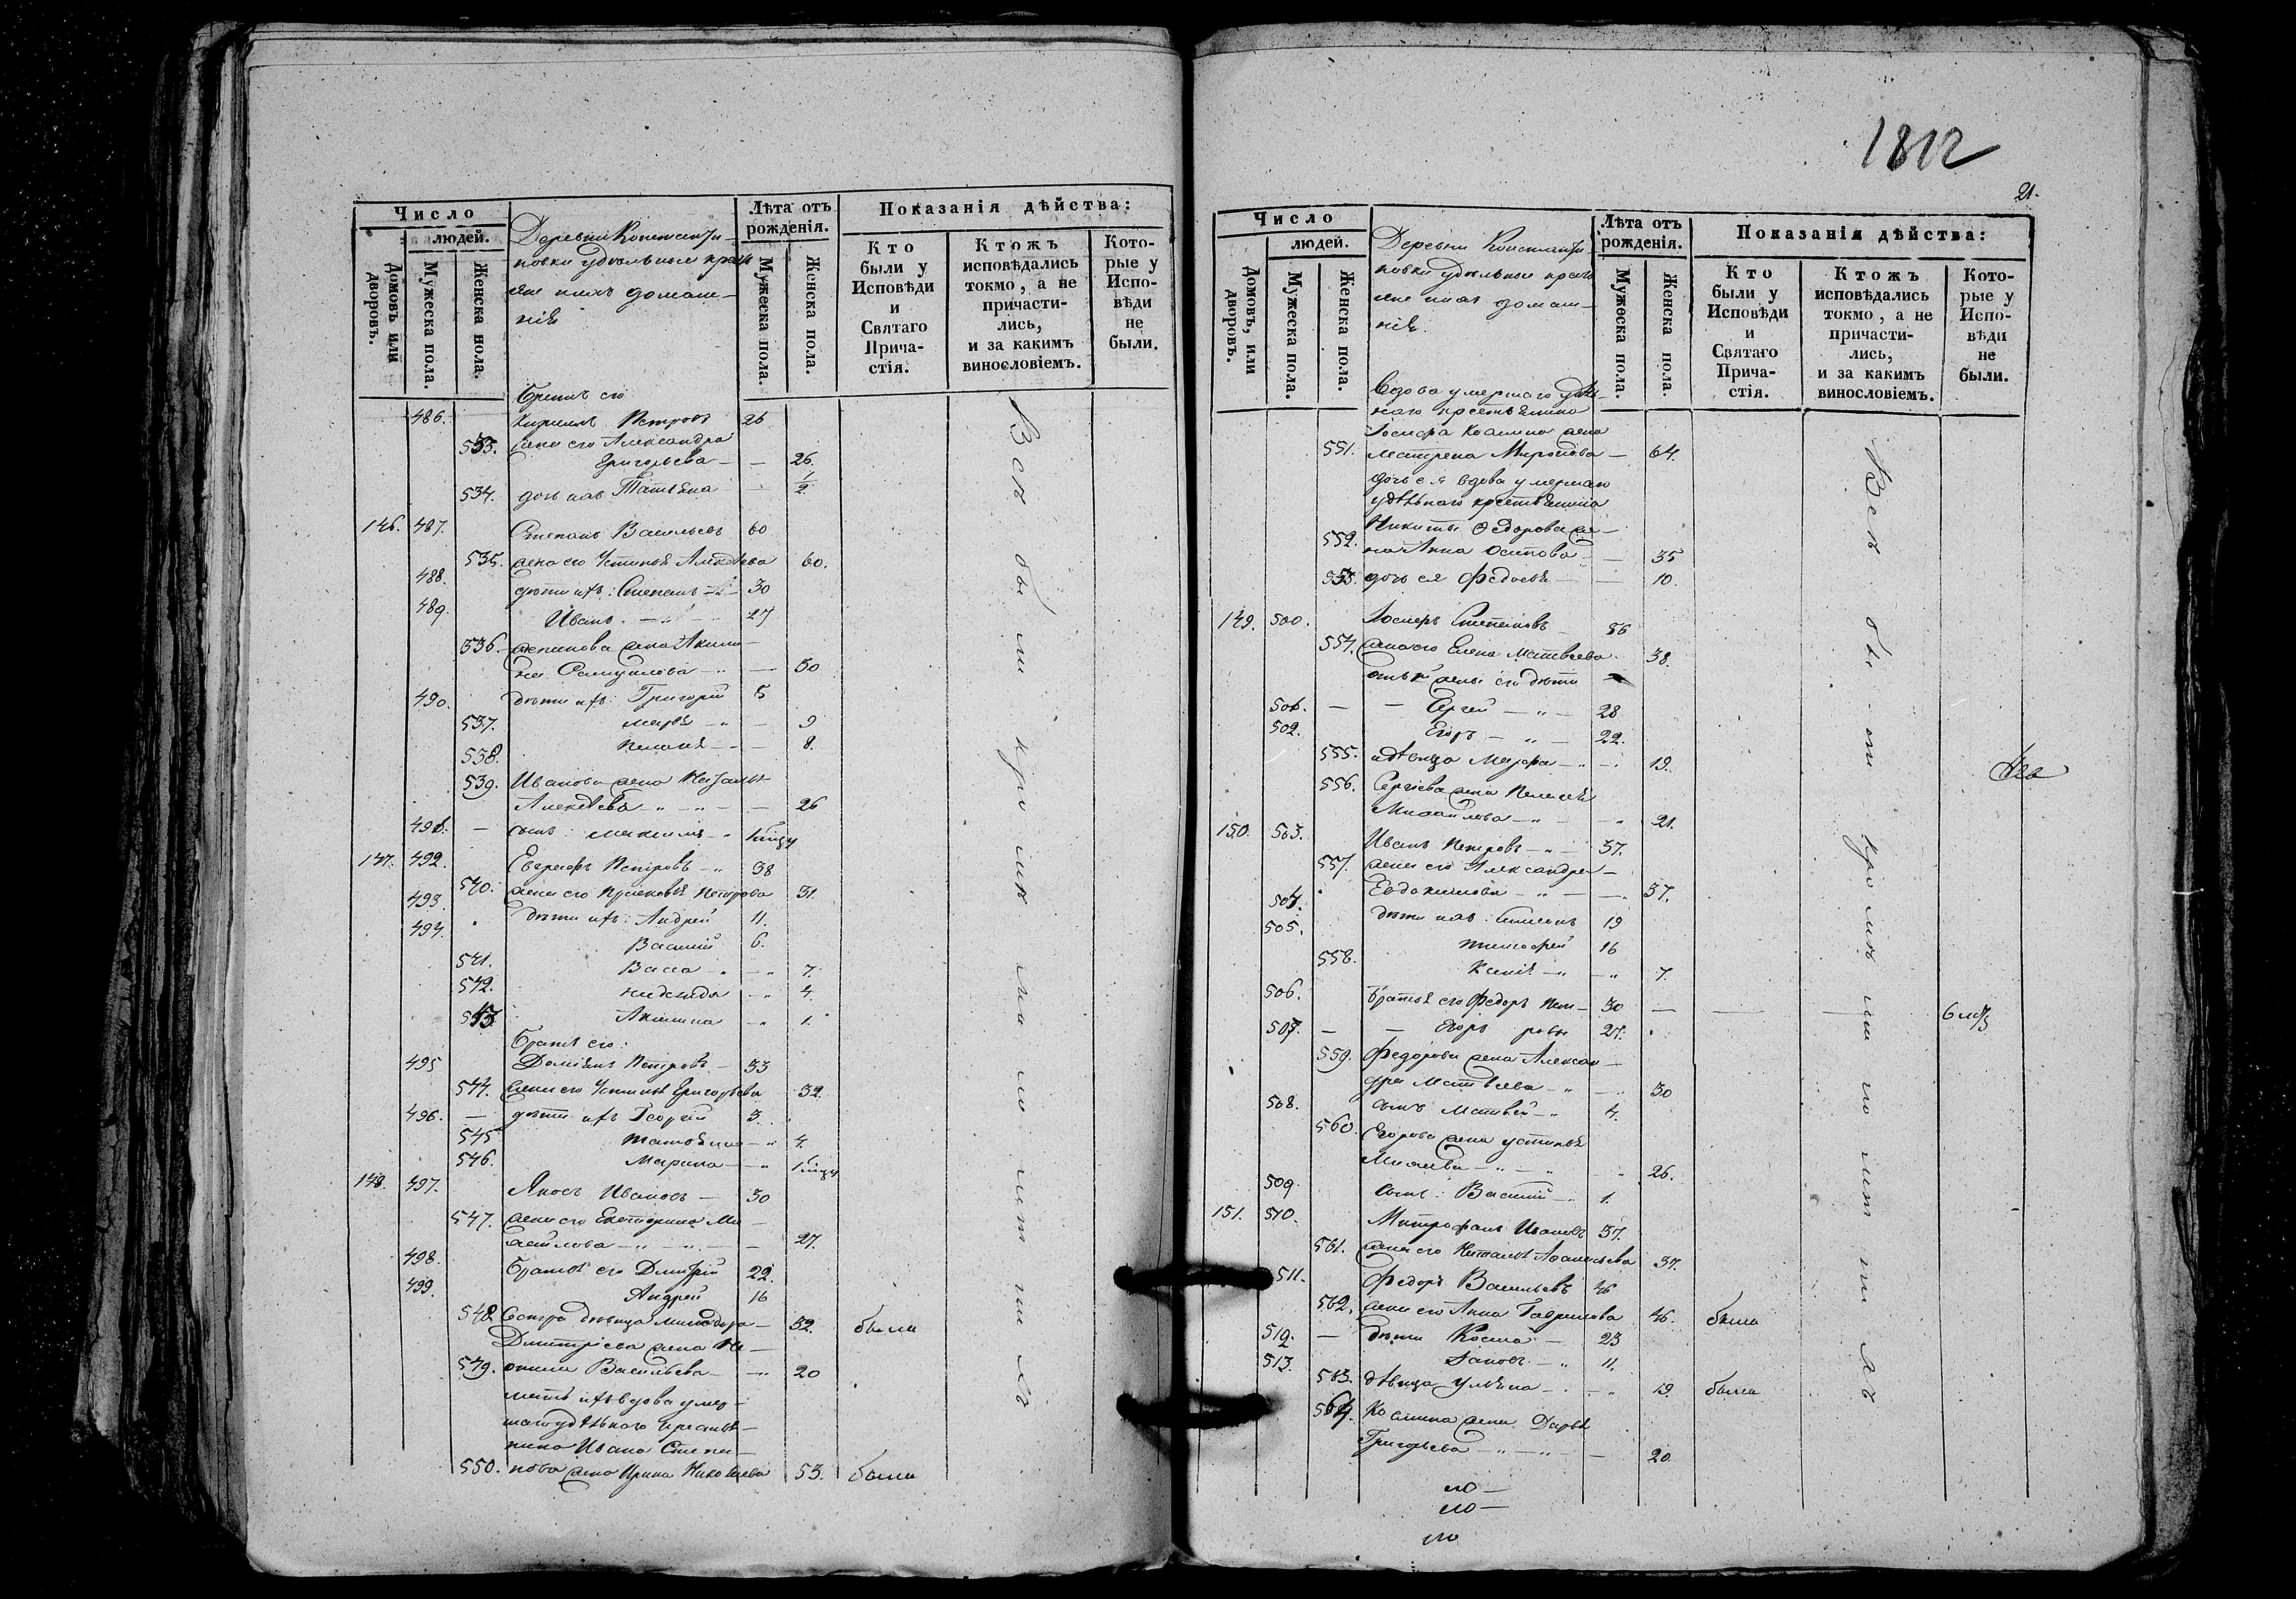 Число
людей.
Домовъ или дворовъ.
Мужеска пола.
Женска пола.
Деревни Константи-
новки удѣльные крест
яне ихъ домаш-
ніе
Лѣта отъ рожденія.
Мужеска пола.
Женска пола.
Показанія дѣйства:
Кто были у Исповѣди и Святаго Причастія.
Ктожъ исповѣдались токмо, а не причастились, и за какимъ винословіемъ.
Которые у Исповѣди не были.
Братъ его
486. Кирилъ Петровъ 26
533. жена его Александра
Григорьева — 26.
534. дочь ихъ Татьяна 1/2
146. 487. Степанъ Васильевъ 60
535. жена его Устинья Алексѣева 60.
488. дѣти ихъ: Степанъ 30
489. Иванъ 27
536. жена Акили-
на Самуилова — 30
490. дѣти ихъ: Григорій 5
537. Марья — 9
538. Пелагея — 8.
539. Иванова жена Наталья
Алексѣева — 26
491. — сынъ: Максимъ
147. 492. Евграфъ Петровъ 38
540. жена его Прасковья Петрова 31.
493. дѣти ихъ: Андрей 11.
494. Василій 6.
541. Васса 7.
542. Надежда 4.
543. Акилина 1.
Братъ его:
495 Домианъ Петровъ — 33
544. жена его Устинья Григорьева 32.
496. — дѣти ихъ Георгій 3.
545 Татьяна 4.
546. Марина
148. 497. Яковъ Ивановъ — 30
547. жена его Екатерина Ми-
хайлова — 27.
498. Братья его Димитрій 22.
499. Андрей 16
548. Сестра дѣвица 32. была
Дмитріева жена
549. Васильева — 20
мать ихъ вдова умер-
шаго удѣльнаго крестья-
нина Ивана Степа-
550. нова жена Ирина Николаева 53. была
Всѣ были кромѣ малолѣтнихъ
1812
21.
Число
людей.
Домовъ, или дворовъ.
Мужеска пола.
Женска пола.
Деревни Константи
новки удѣльные крест
яне ихъ домаш-
ніе.
Лѣта отъ рожденія.
Мужеска пола.
Женска пола.
Показанія дѣйства:
Кто были у Исповѣди и Святаго Причастія.
Ктожъ исповѣдались токмо, а не причастились, и за какимъ винословіемъ.
Которые у Исповѣди не были.
Вдова умершаго удѣль-
наго крестьянина
Іосифа Козмина жена
551. Матрена Миронова — 64.
дочь ея вдова умершаго
удѣльнаго крестьянина
Никиты Ѳедорова же-
552. на Анна Осипова — 35
553. дочь ея Федосья — 10.
149. 500. Іосифъ Степановъ 56
554. жена его Елена Матвѣева 38.
жены его дѣти
501. — Сергей 28
502. Егоръ 22.
555. дѣвица Марфа 19.
556. Сергѣева жена Пелагея
Михайлова 21.
150. 503. Иванъ Петровъ 37.
557. жена его Александра
Евдокимова 37.
504. дѣти ихъ: 19
505. Тимофей 16
558. Ксенія 7.
506. Братья его Федоръ Пет- 30 —
507. — Егоръ ровы 27.
559. Федорова жена Алексан-
дра Матвѣева 30
508. сынъ Матвѣй 4.
560. Егорова жена Устинья
26.
509. сынъ: Василій 1.
151. 510. Митрофанъ Ивановъ 37.
561. жена его Наталья Афанасьева 37.
511. Федоръ Васильевъ 46
562. жена его Анна Гаврилова 46. была
512. — дѣти Косма — 23
513. Яковъ 11.
563. дѣвица Ульяна 19. была
564. Козмина жена Дарья
Григорьева 20.
Всѣ были кромѣ малолѣтнихъ